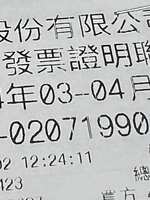 股份有限公司
發票證明聯
年03-04月
-02071990
02 12:24:11
423
總
賣方